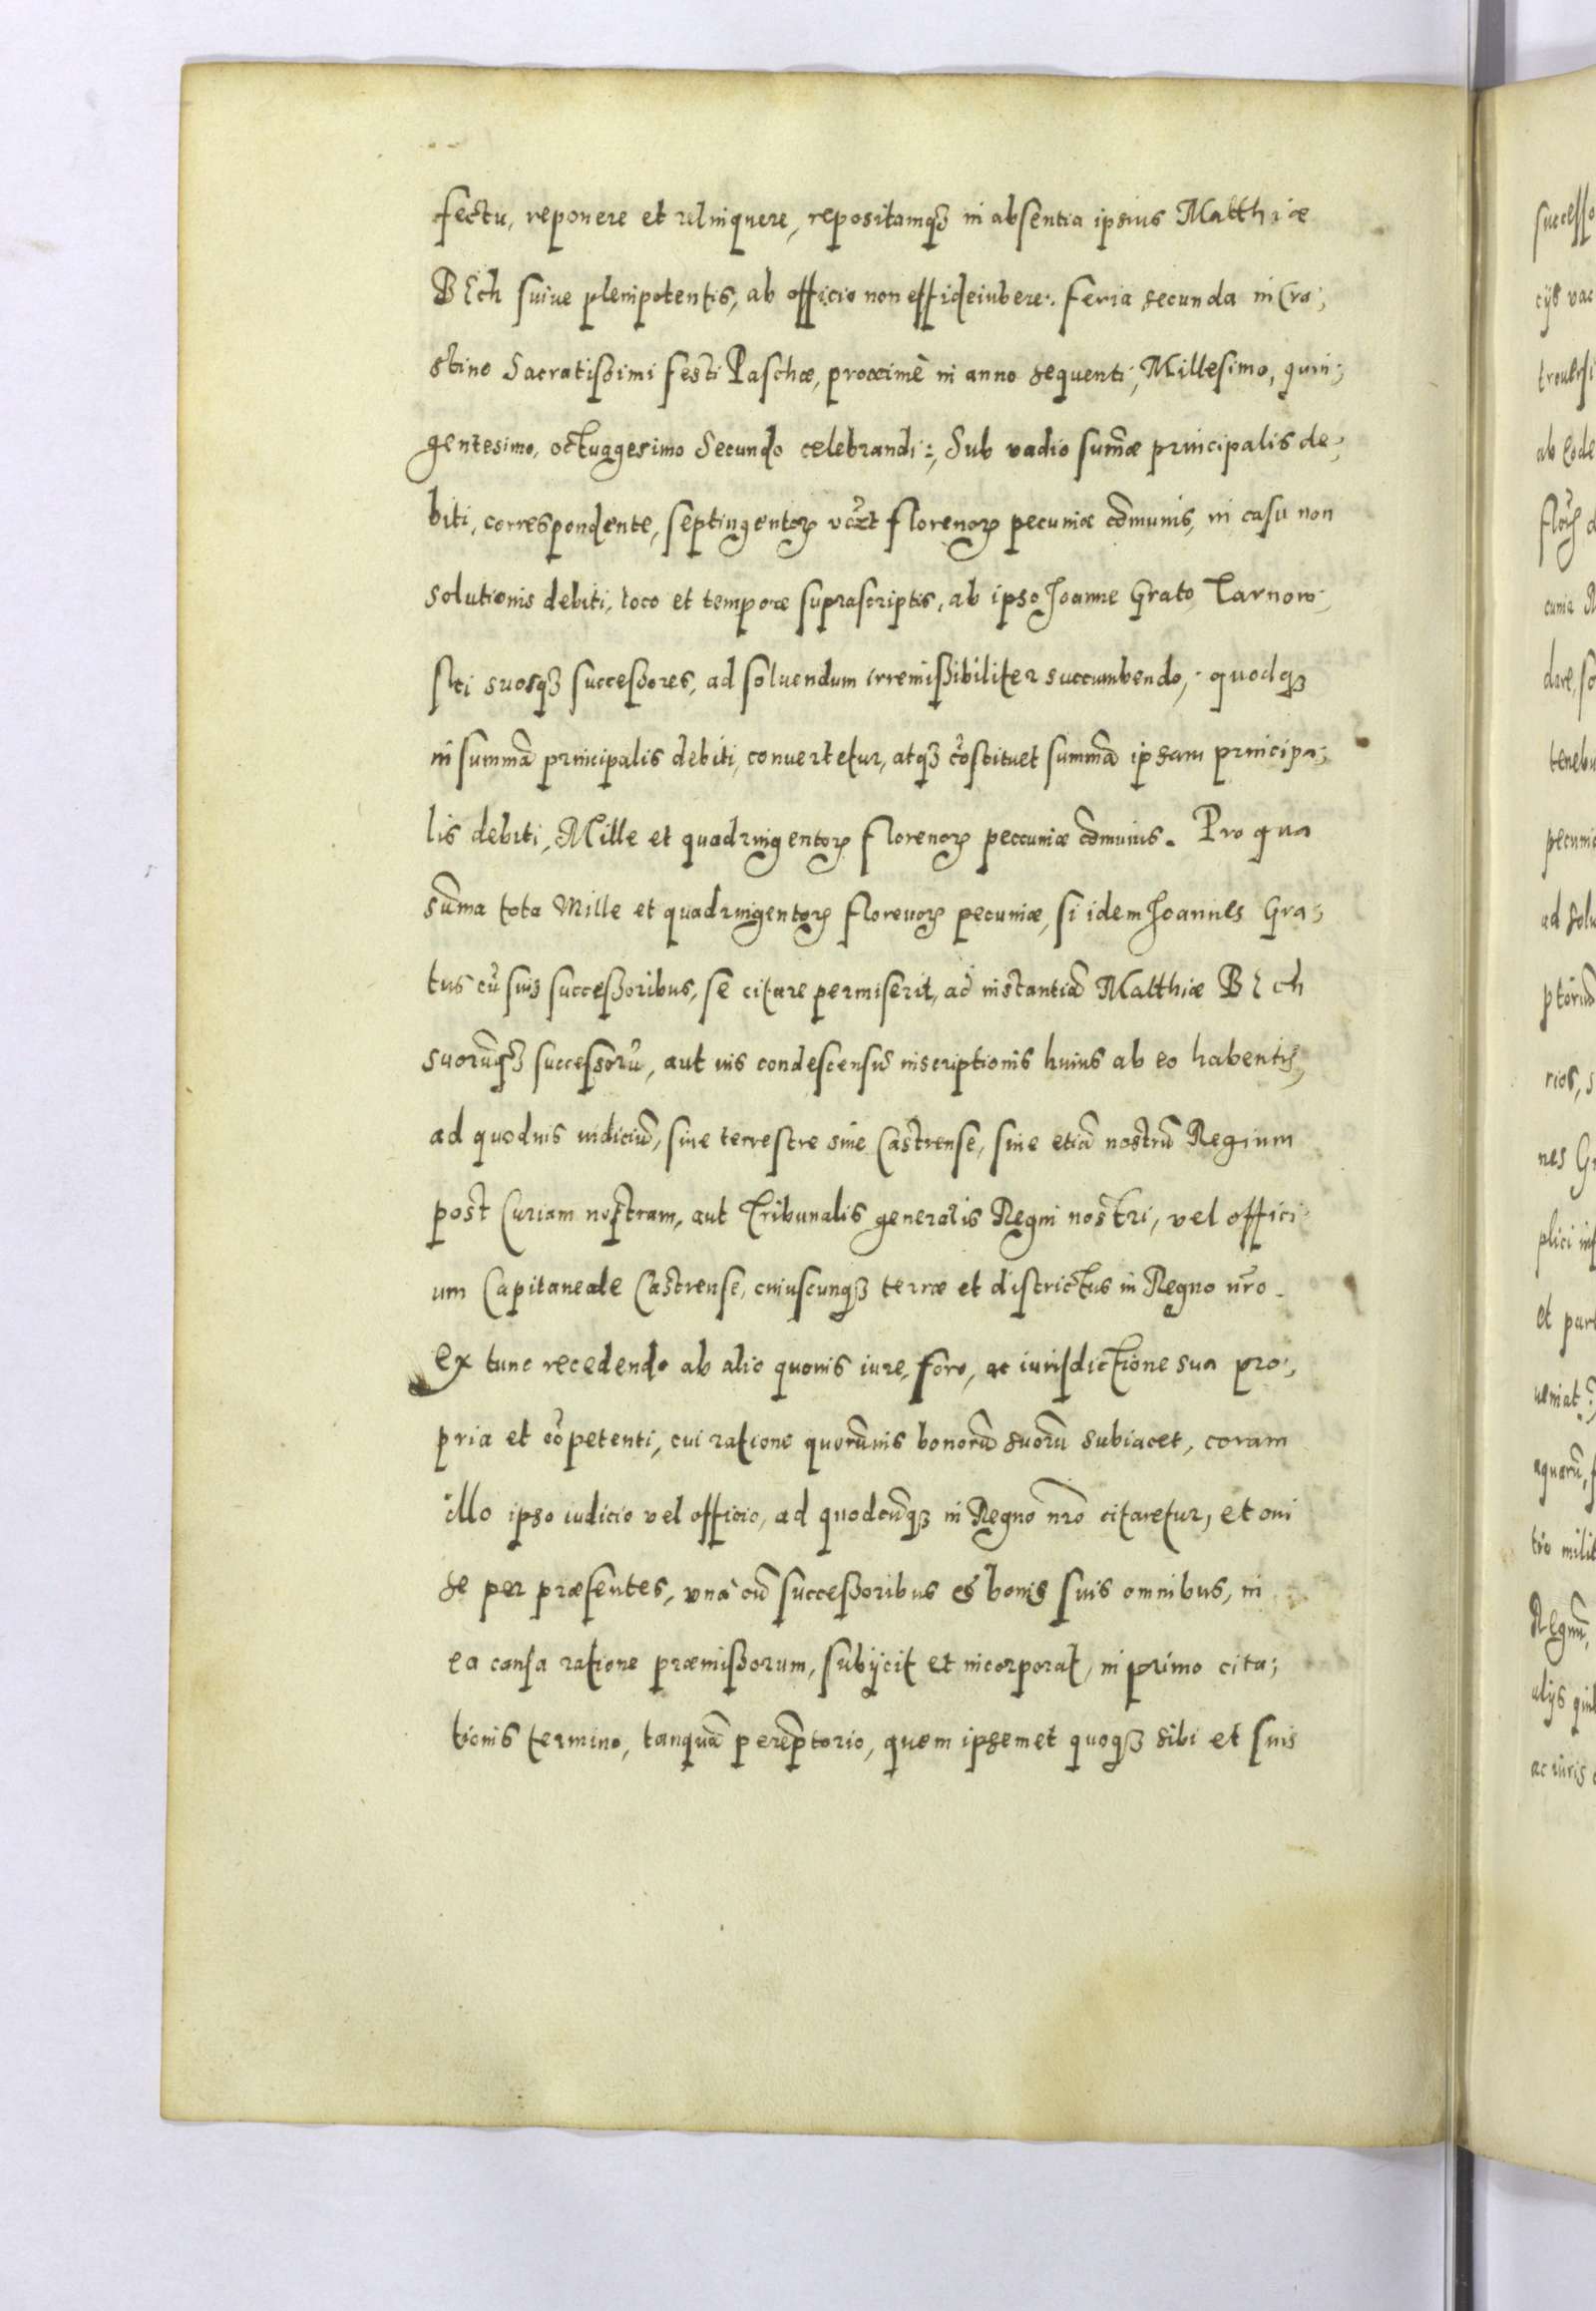 fectu, reponere et relinquere, repositamqꝫ in absentia ipsius Matthiæ
Blch suiue plenipotentis, ab officio non effideiubere. feria secunda in Cra,
stino Sacratissimi festi Paschæ, proxime in anno sequenti, Millesimo, quin;
gentesimo, octuagesimo Secundo celebrandi:, Sub vadio sum̃æ principalis de,
biti, correspondente, septingentoꝝ florenoꝝ pecuniæ cõmunis, in casu non
solutionis debiti, loco et tempore suprascriptis, ab ipso Joanne Grato Tarnow,
ski suosqꝫ successores, ad soluendum irremissibiliter succumbendo, quodqꝫ
in summã principalis debiti, conuertetur, atqꝫ cõstituet summã ipsam principa;
lis debiti, Mille et quadringentoꝝ florenoꝝ peccuniæ cõmunis. Pro qua
sũma tota Mille et quadringentoꝝ florenoꝝ pecuniæ, si idem Joannes Gra;
tus cũ suis successoribus, se citare permiserit, ad instantiã Matthiæ Blch
suorũqꝫ successorũ, aut ius condescensus inscriptionis huius ab eo habentis,
ad quoduis iudiciũ, siue terrestre siue Castrense, siue etiã nostrũ Regium
post Curiam nostram, aut Tribunalis generalis Regni nostri, vel offici
um Capitaneale Castrense, cuiuscunqꝫ terræ et districtus in Regno nr̃o.
Ex tunc recedendo ab alio quouis iure, foro, ac iurisdictione sua pro,
pria et cõpetenti, cui ratione quorũuis bonorũ suorũ subiacet, coram
illo ipso iudicio vel officio, ad quodcũqꝫ in Regno nr̃o citaretur, et oni
se per præsentes, vnà cũ successoribus & bonis suis omnibus, in
ea causa ratione præmissorum, subijcit et incorporat, in primo cita;
tionis termino, tanquã perẽptorio, quem ipsemet quoqꝫ sibi et suis